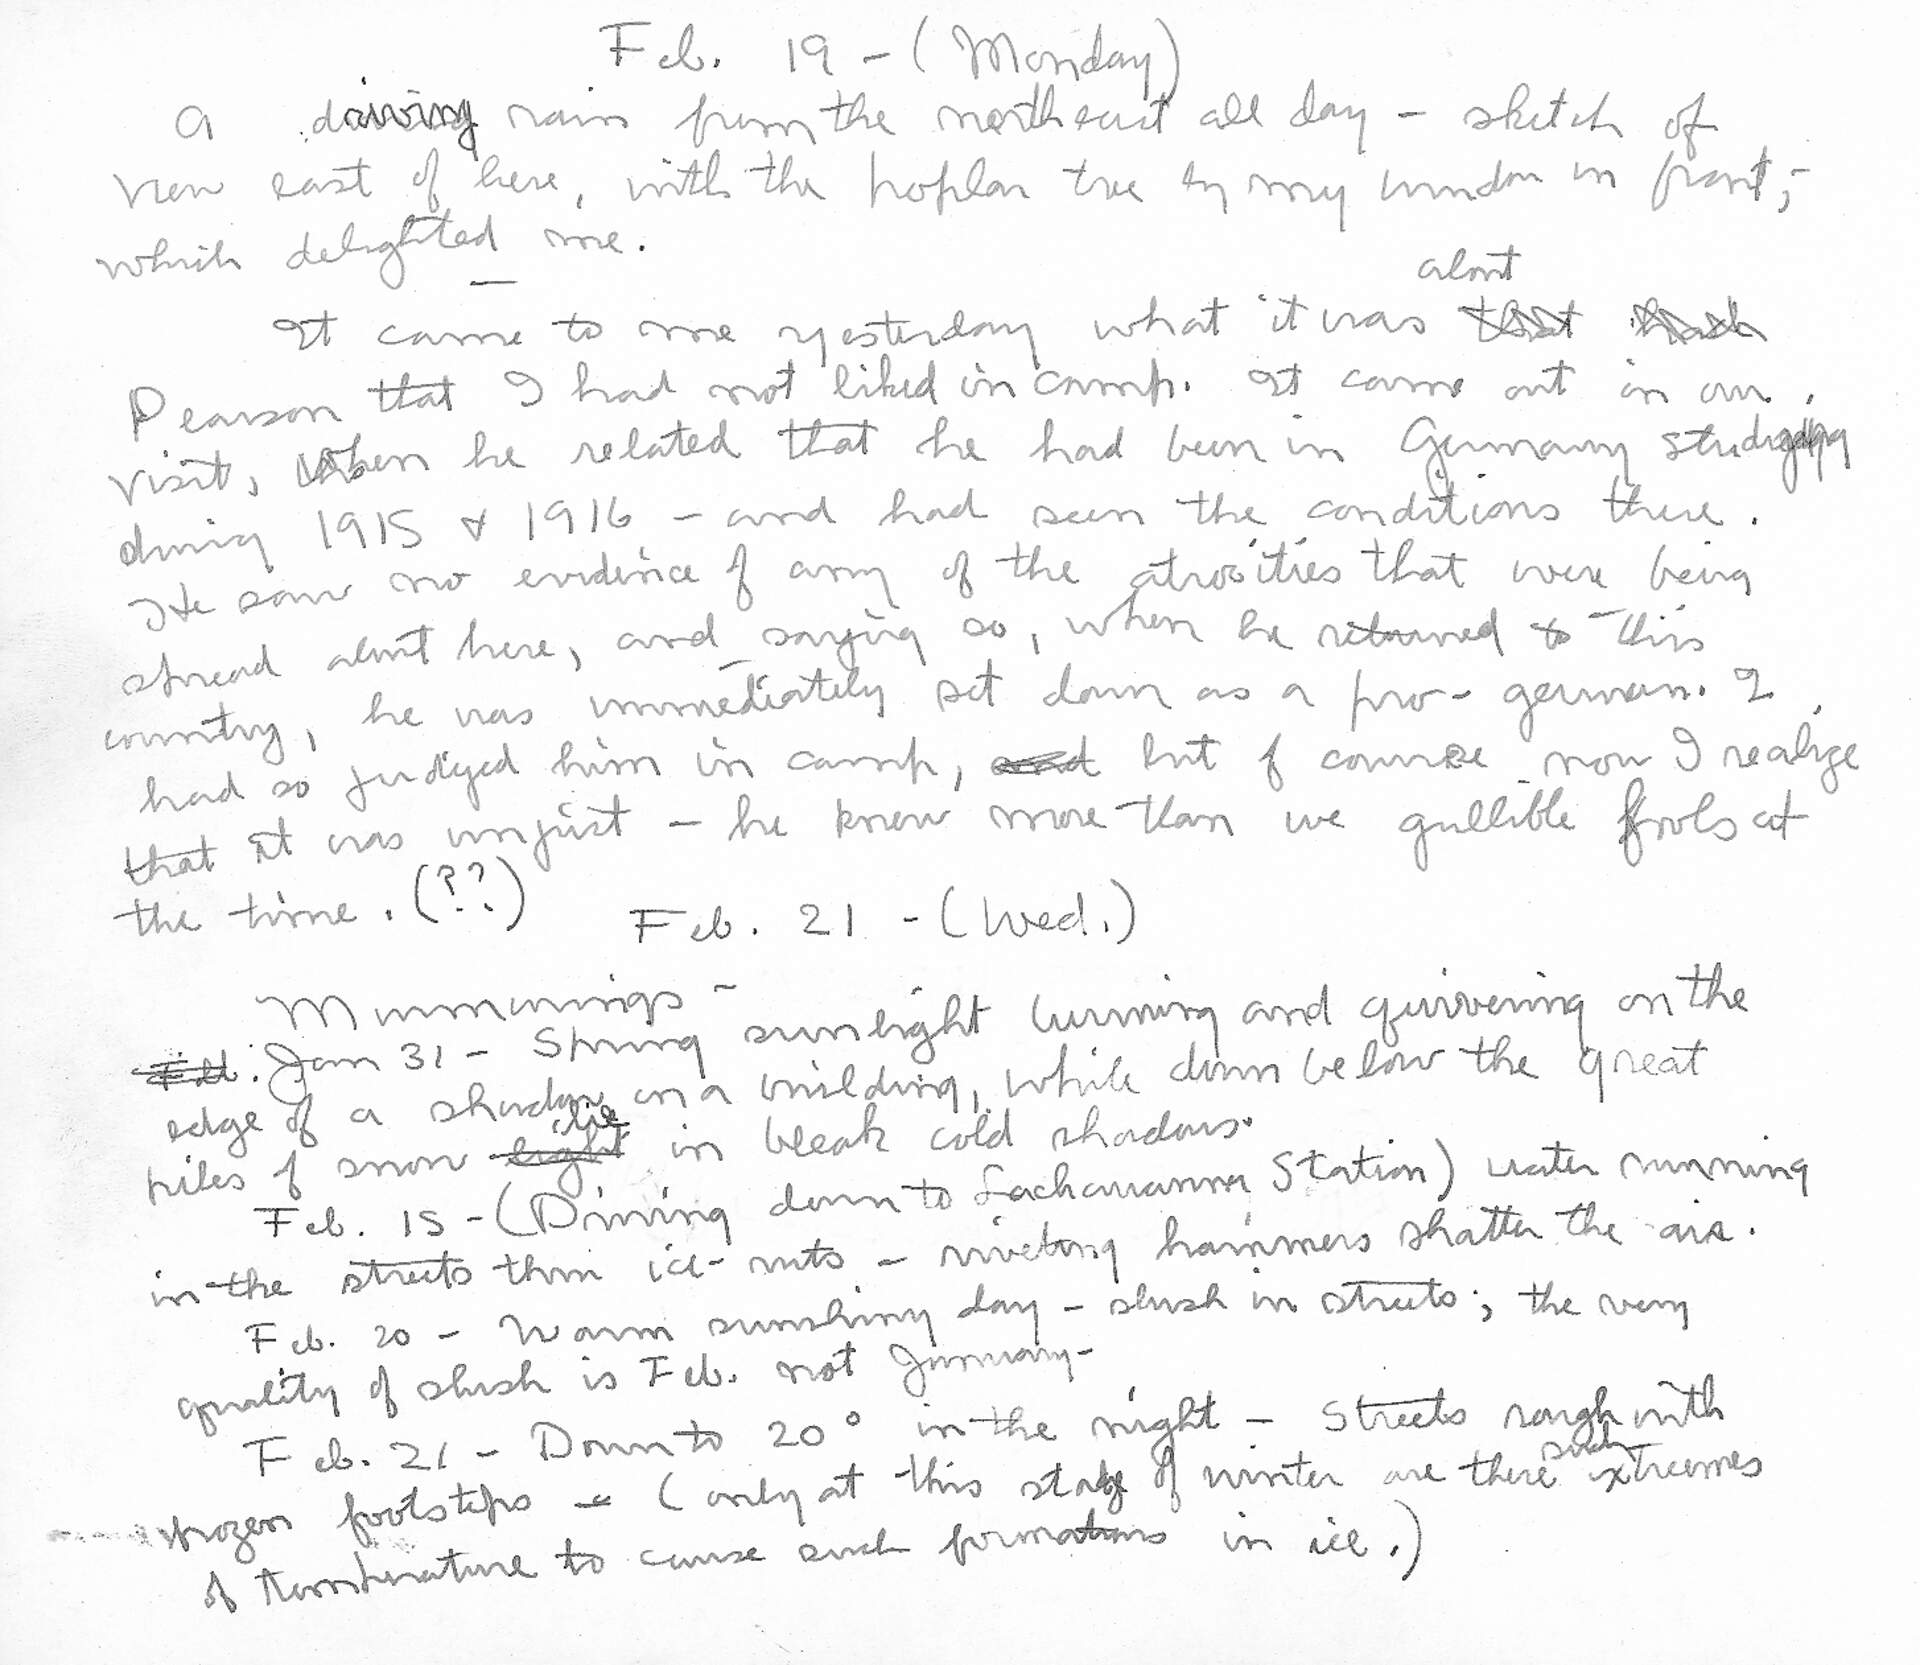 Feb. 19 - (Monday)
A driving rain from the northeast all day - sketch of
view east of here, with the poplar tree by my window in front, -
which delighted me.
about
It came to me yesterday what it was that had
Pearson that I had not liked in camp. It came out in our
visit, when he related that he had been in Germany studying
during 1915 & 1916 - and had seen the conditions there.
He saw no evidence of any of the atrocities that were being
spread about here, and saying so, when he returned to this
country, he was immediately set down as a pro-german. I
had so judged him in camp, and but of course now I realize
that it was unjust - he knew more than we gullible fools at
the time. (??)
Feb. 21 - (Wed.)
Mummurings -
Feb. Jan 31 - Spring sunlight burning and quivering on the
edge of a shadow on a building, while down below the great
lie
piles of snow light in bleak cold shadows.
Feb. 15 - (Driving down to Lackawanna Station) water running
in the streets thru ice-ruts - riveting hammers shatter the air.
Feb. 20 - Warm sunshiny day - slush in streets; the very
quality of slush is Feb. not January -
Feb. 21 - Down to 20° in the night - streets rough with
such
frozen footsteps - (only at this stage of winter are there extreemes
of temperature to cause such formations in ice.)